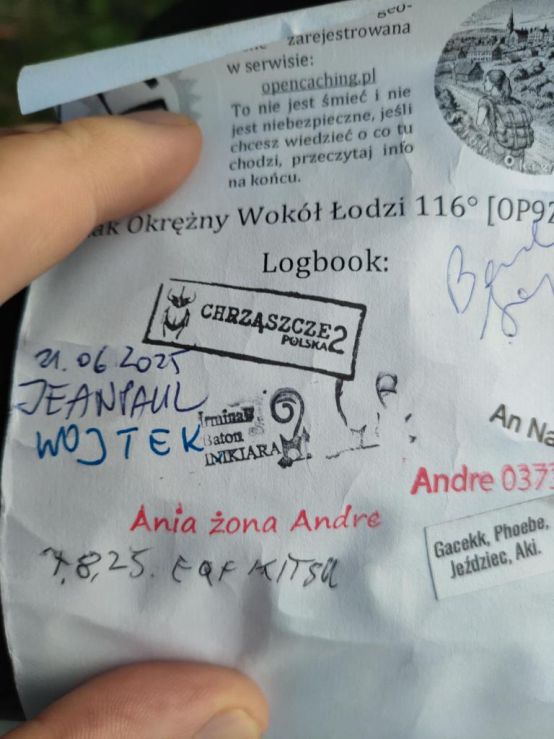 geo-
zarejestrowana
w serwisie:
opencaching.pl
To nie jest śmieć i nie
jest niebezpieczne, jeśli
chcesz wiedzieć o co tu
chodzi, przeczytaj info
na końcu.
Okrężny Wokół Łodzi 116° [OP9Z
Logbook:
CHRZĄSZCZE 2
POLSKA
21.06.2025
JEANPAUL
WOJTEK
Irmina
Baton
INIKIARA
An Na
Andre 0373
Ania żona Andre
Gacekk, Phoebe,
Jeździec, Aki.
7,8,25. EQF KITSU